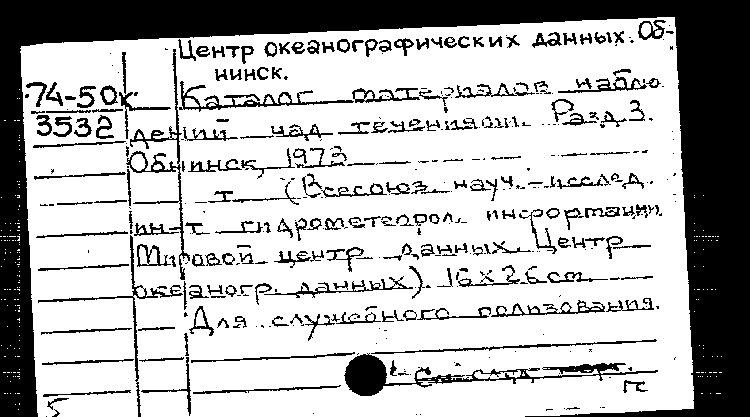 Центр океанографических данных. Об-
нинск.
74-50к Каталог материалов наблю
3532 дений над течениями. Разд. 3.
Обнинск, 1973
т. (Всесоюз. науч.-исслед.
ин-т гидрометеорол. информации.
Мировой центр данных. Центр
океаногр. данных). 16×26 см.
Для служебного ползования.
См. след.
5